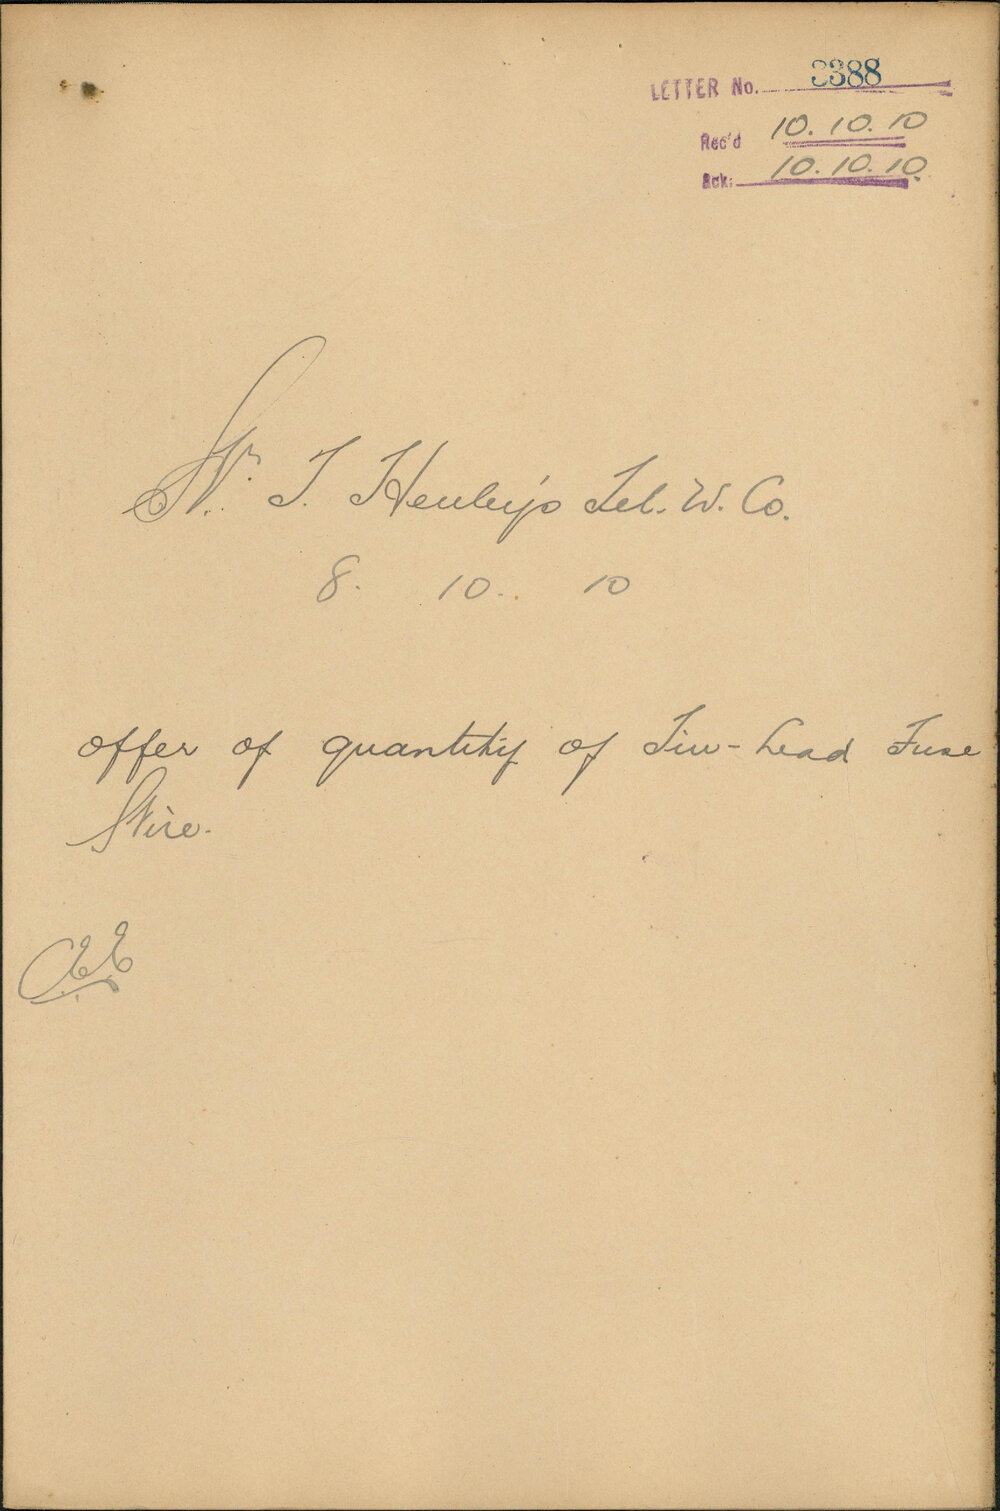 LETTER No. 3388
Rec'd 10.10.10
Ack. 10.10.10.
W. T. Henley's Tel. W. Co.
8. 10. 10
offer of quantity of Tin-Lead Fuse
Wire.
CEE